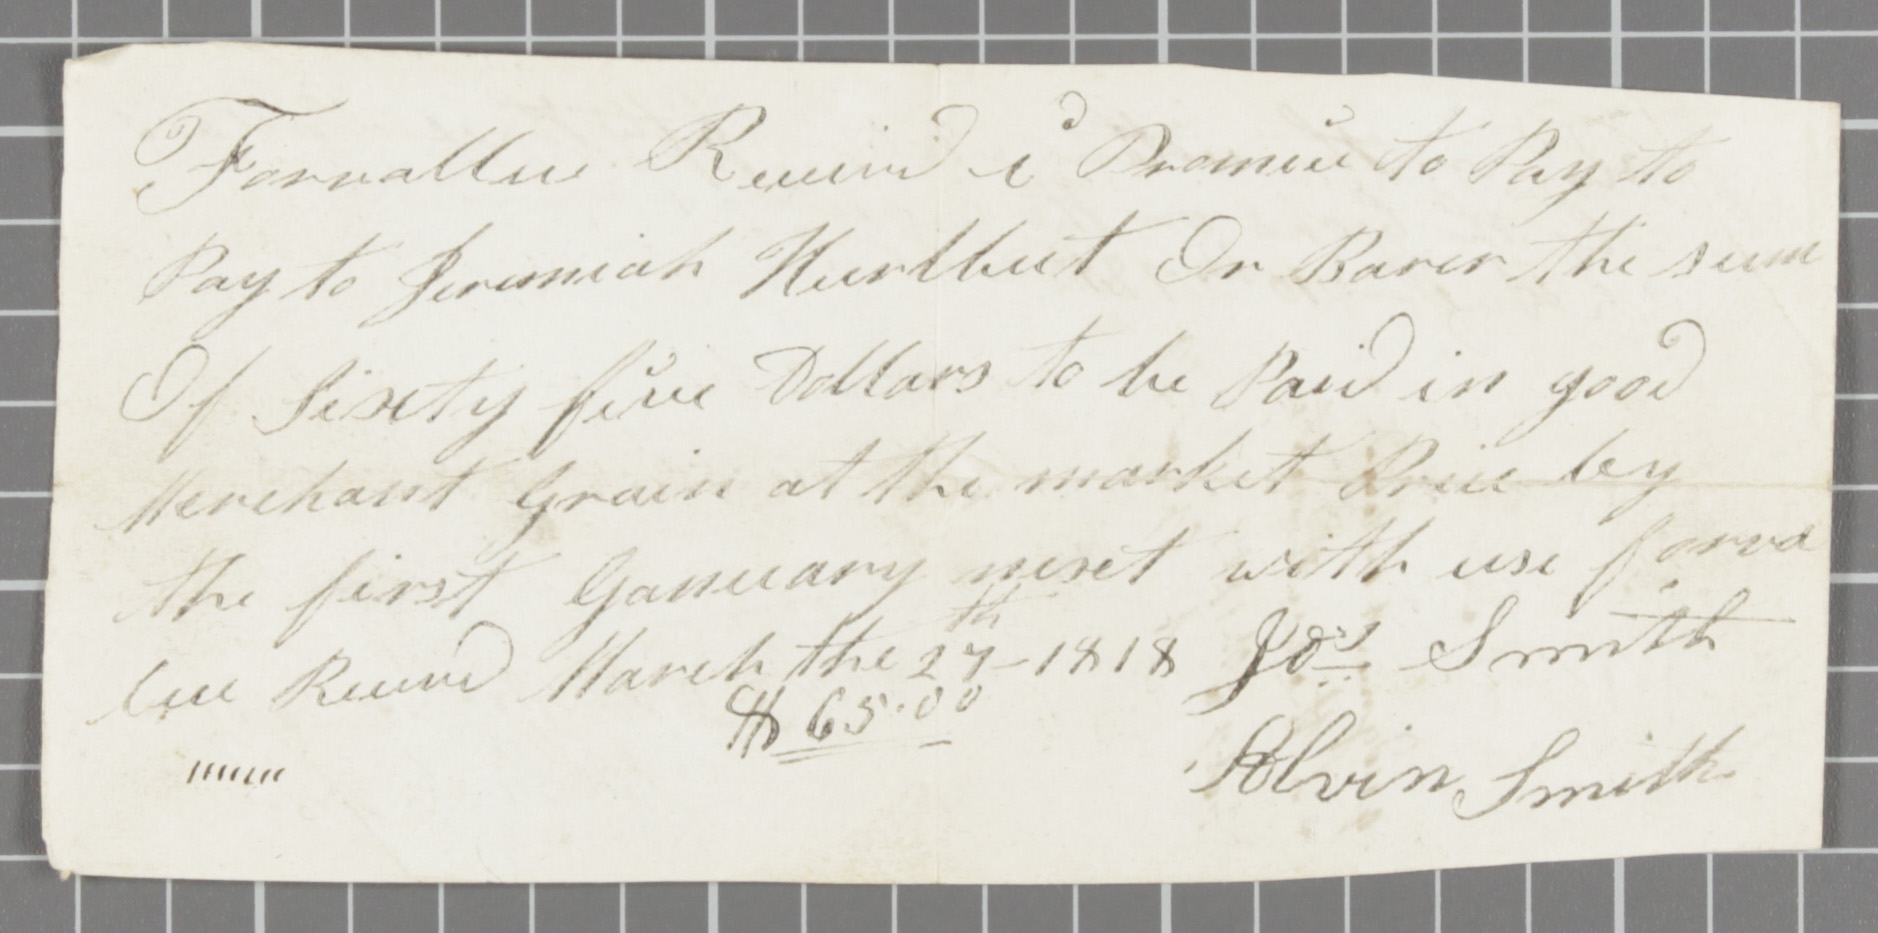 Forvallue Receivd i Promise to Pay to
Pay to Jeremiah Hurlbut Or Barer the sum
Of Sixty five Dollars to be Paid in good
Merchant Grain at the market Price by
the first Ganuary next with use forva
lue Receivd March the 27th - 1818 Jos Smith
$ 65.00
Alvin Smith